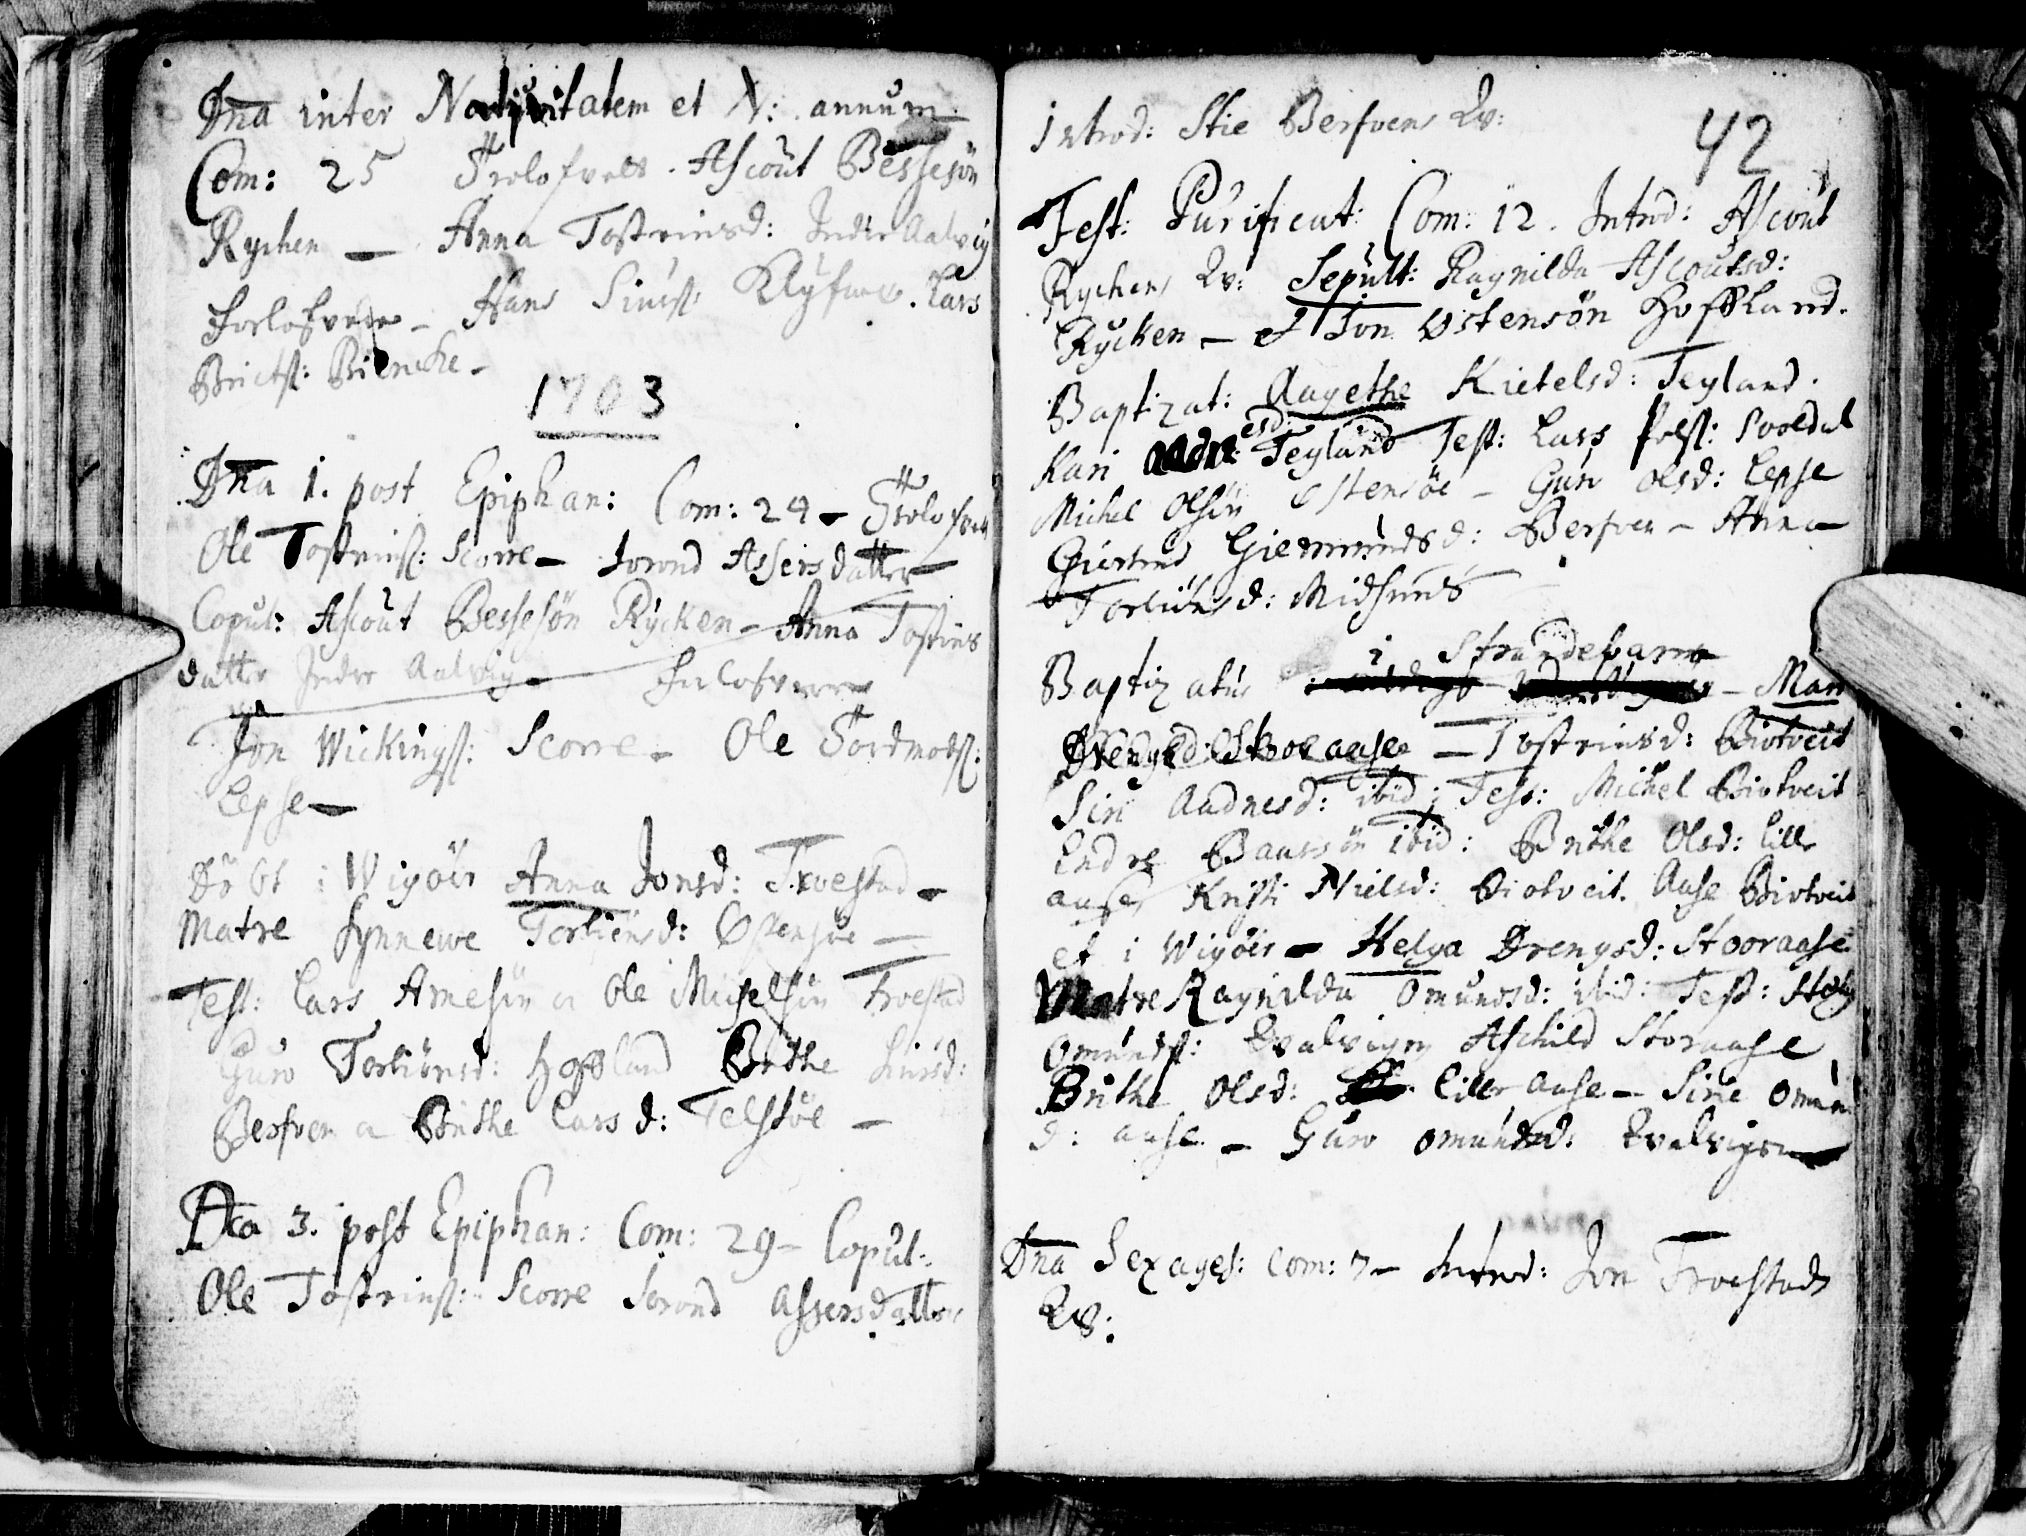 Dna inter Nativitatem et N: annum
Com: 25 Trolofvelse. Ascout Bessesön
Rychen — Anna Tostensd: Indre Aalvig
forlofvere — Hans Siurs: Lars
Bricts: Biencke —
1703
Dna 1. post Epiphan: Com: 24 — Trolofvels
Ole Tostrins: Scorre — Jorond Assersdatter —
Copul: Ascout Bessesön Rycken — Anna Tostins
datter Indre Aalvig — forlofvere
Jon Wickings: Scorre — Ole Tordmods:
Lepse —
Döbt i Wigöer Anna Jonsd: Troestad —
Matre Synnewe Torbiönsd: Ostensöe —
Test: Lars Arnesön a Ole Michelsön Troestad
Guro Torbiönsd: Hoffland Brithe Siursd:
Berfven a Brithe Larsd: Telstöe —
Dca 3. post Epiphan: Com: 29 — Copul:
Ole Tostrins: Scorre Jorond Assersdatter
42
Introd: Stie Berfvens Qv:
Fest: Purificat: Com: 12. Introd: Ascout
Rychens Qv: Sepult: Ragnilda Ascoutsd:
Rycken — et Jon Ostensön Hoffland.
Baptizat: Aagethe Kietelsd: Teyland.
esd:
Kari Teyland Test: Lars Pols: Soeldal
Michel Olsön Ostensöe — Guro Olsd: Lepse
Giertrud Giermundsd: Berfven — Anna
Torbiönsd: Midsund
i Strandebarm
Baptizatus — Mari
Drengsd: Storaase — Tostrinsd: Biotveit
Siri Aadnesd: ibid: Test: Michel Biotveit
Endre Baarsön ibid: Brithe Olsd: Lille
aase Kristi Nielsd: Biotveit. Aase Biotveit
et i Wigöer — Helga Drengsd: Stooraase
Matre Ragnilda Omundsd: ibid: Test:
Omunds: Qvalvigen Aschild Storaase
Brithe Olsd: Liller aase — Sirie Omun
d: aase — Guro Omundsd: Qvalvigen —
Dna Sexages: Com: 7 — Introd: Jon Troestads
Qv: